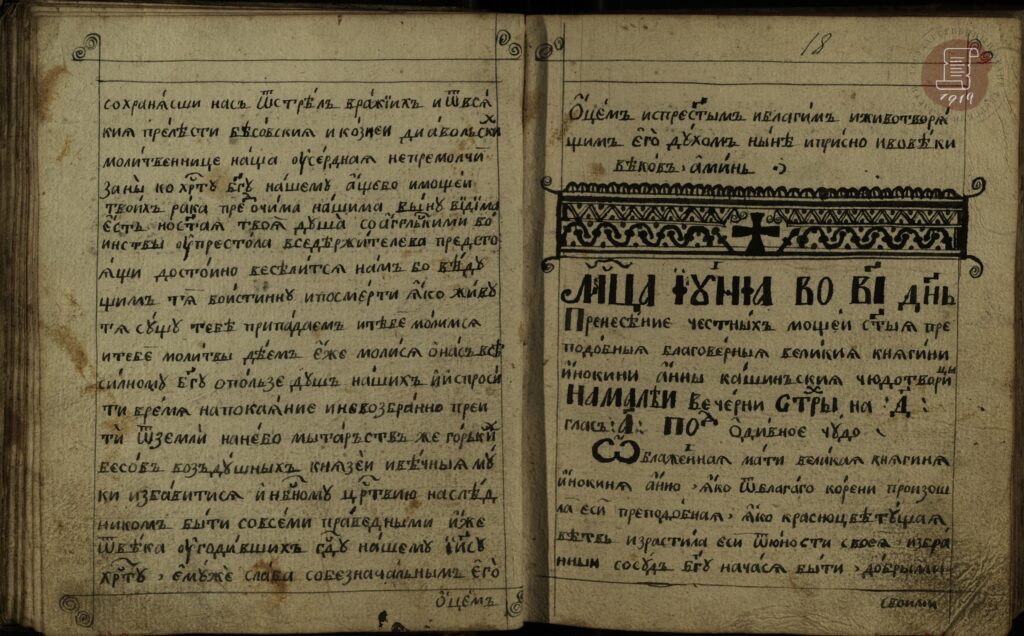 сохранѧ́еши насъ ѿстре́лъ вра́жїихъ и ѿвсѧ́
кия пре́лести бѣсо́вския и ко́зней дїа́вольски
моли́твеннице на́ша ᲂу҆се́рдная непремолчѝ
за ны̀ ко хрⷭ҇ту̀ бг҃у нашему а҆́щебо и мощеи
твои́хъ ра́ка пре очи́ма на́шима вы́ну ви́дима
є҆́сть но ст҃ая твоя̀ душа̀ со а҆гг҃льскими во́
инствы ᲂу҆престо́ла вседержи́телева предсто
ѧ́щи досто́йно весели́тся на́мъ бо вѣ́ду
щимъ тѧ̀ вои́стинну и посме́рти ꙗ҆́ко жи́ву
тѧ су́щу тебѣ̀ припа́даемъ и тебѣ̀ мо́лимся
и тебѣ моли́твы дѣ́емъ є҆́же моли́ся о҆ на́съ всѣ
си́лному бг҃у опо́льзе ду́шъ на́шихъ и҆ испроси́
ти вре́мя на покая́ние и невозбра́нно преи
тѝ ѿ землѝ на не́бо мыта́рствъ же го́рькиⷯ
бесо́въ возду́шныхъ князе́и и вѣ́чныя му́
ки изба́витися и҆ нбⷭ҇ному црⷭ҇твию наслѣ́д
никомъ бы́ти со все́ми пра́ведными и҆́же
ѿ вѣ́ка ᲂу҆годи́вшихъ гдⷭ҇у на́шему і҆и҃су
хрⷭ҇ту̀, є҆му́же сла́ва со безнача́льнымъ є҆го̀
ѻ҆ц҃е́мъ
18
Ѻ҆ц҃е́мъ и спрест҃ы́мъ и благи́мъ и животворѧ́
щимъ є҆го̀ ду́хомъ ны́нѣ и при́сно и во вѣ́ки
вѣко́въ, а҆ми́нь
1919
Мцⷭ҇а їꙋ́нїа во в҃і дн҃ь
Пренесе́ние че́стныхъ моще́и ст҃ы́я пре
подо́бныя благове́рныя вели́кия княги́ни
и҆́нокини а҆́нны ка́шинския чюдотвори́цы
На ма́лѣи вече́рни стры на д҃
гласъ а҃ под ѻ҆ ди́вное чу́до
Ѽ блаже́нная ма́ти вели́кая княги́ня
и҆́нокиня а҆́нно, ꙗ҆́ко ѿ блага́го ко́рени произош
ла̀ є҆сѝ преподо́бная, ꙗ҆́ко красноцвѣту́щая
вѣ́твь израсти́ла еси ѿ ю҆́ности своея̀, избра́
нныи сосу́дъ бг҃у нача́ся бы́ти, до́брыми
свои́ми